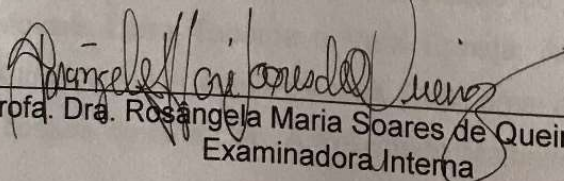 Profa. Dra. Rosângela Maria Soares de Queir
Examinadora Interna